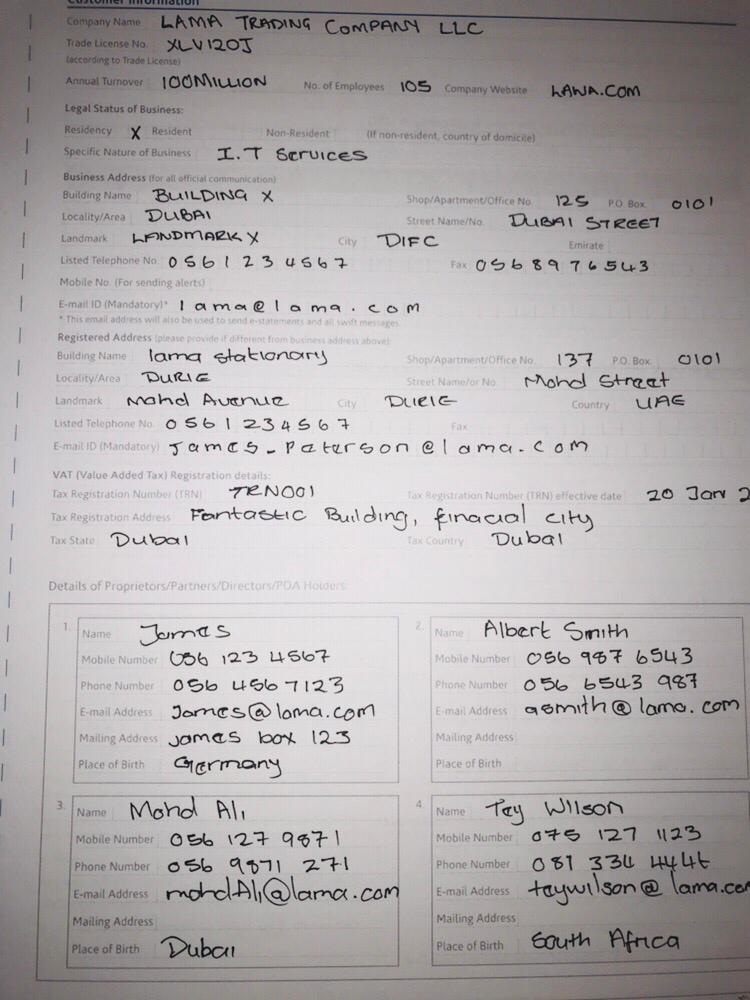 Customer Information
Company Name LAMA TRADING COMPANY LLC
Trade License No. XLV120J
(according to Trade License)
Annual Turnover 100MILLION No. of Employees 105 Company Website LAWA.COM
Legal Status of Business:
Residency X Resident Non-Resident (If non-resident, country of domicile)
Specific Nature of Business I.T Services
Business Address (for all official communication)
Building Name BUILDING X Shop/Apartment/Office No. 125 P.O. Box. 0101
Locality/Area DUBAI Street Name/No. DUBAI STREET
Landmark LANDMARK X City DIFC Emirate
Listed Telephone No. 0561234567 Fax 0568976543
Mobile No. (For sending alerts)
E-mail ID (Mandatory)* lama@lama.com
* This email address will also be used to send e-statements and all swift messages.
Registered Address (please provide if different from business address above):
Building Name lama stationary Shop/Apartment/Office No. 137 P.O. Box. 0101
Locality/Area DURIE Street Name/or No. Mohd Street
Landmark Mohd Avenue City DURIE Country UAE
Listed Telephone No. 0561234567 Fax
E-mail ID (Mandatory) James_Paterson@lama.com
VAT (Value Added Tax) Registration details:
Tax Registration Number (TRN) TRN001 Tax Registration Number (TRN) effective date 20 Jan 2
Tax Registration Address Fantastic Building, finacial city
Tax State Dubai Tax Country Dubai
Details of Proprietors/Partners/Directors/POA Holders:
1. Name James
Mobile Number 056 123 4567
Phone Number 056 456 7123
E-mail Address James@lama.com
Mailing Address james box 123
Place of Birth Germany
2. Name Albert Smith
Mobile Number 056 987 6543
Phone Number 056 6543 987
E-mail Address asmith@lama.com
Mailing Address
Place of Birth
3. Name Mohd Ali
Mobile Number 056 127 9871
Phone Number 056 9871 271
E-mail Address mohdAli@lama.com
Mailing Address
Place of Birth Dubai
4. Name Tay Wilson
Mobile Number 075 127 1123
Phone Number 081 334
E-mail Address taywilson@lama.com
Mailing Address
Place of Birth South Africa